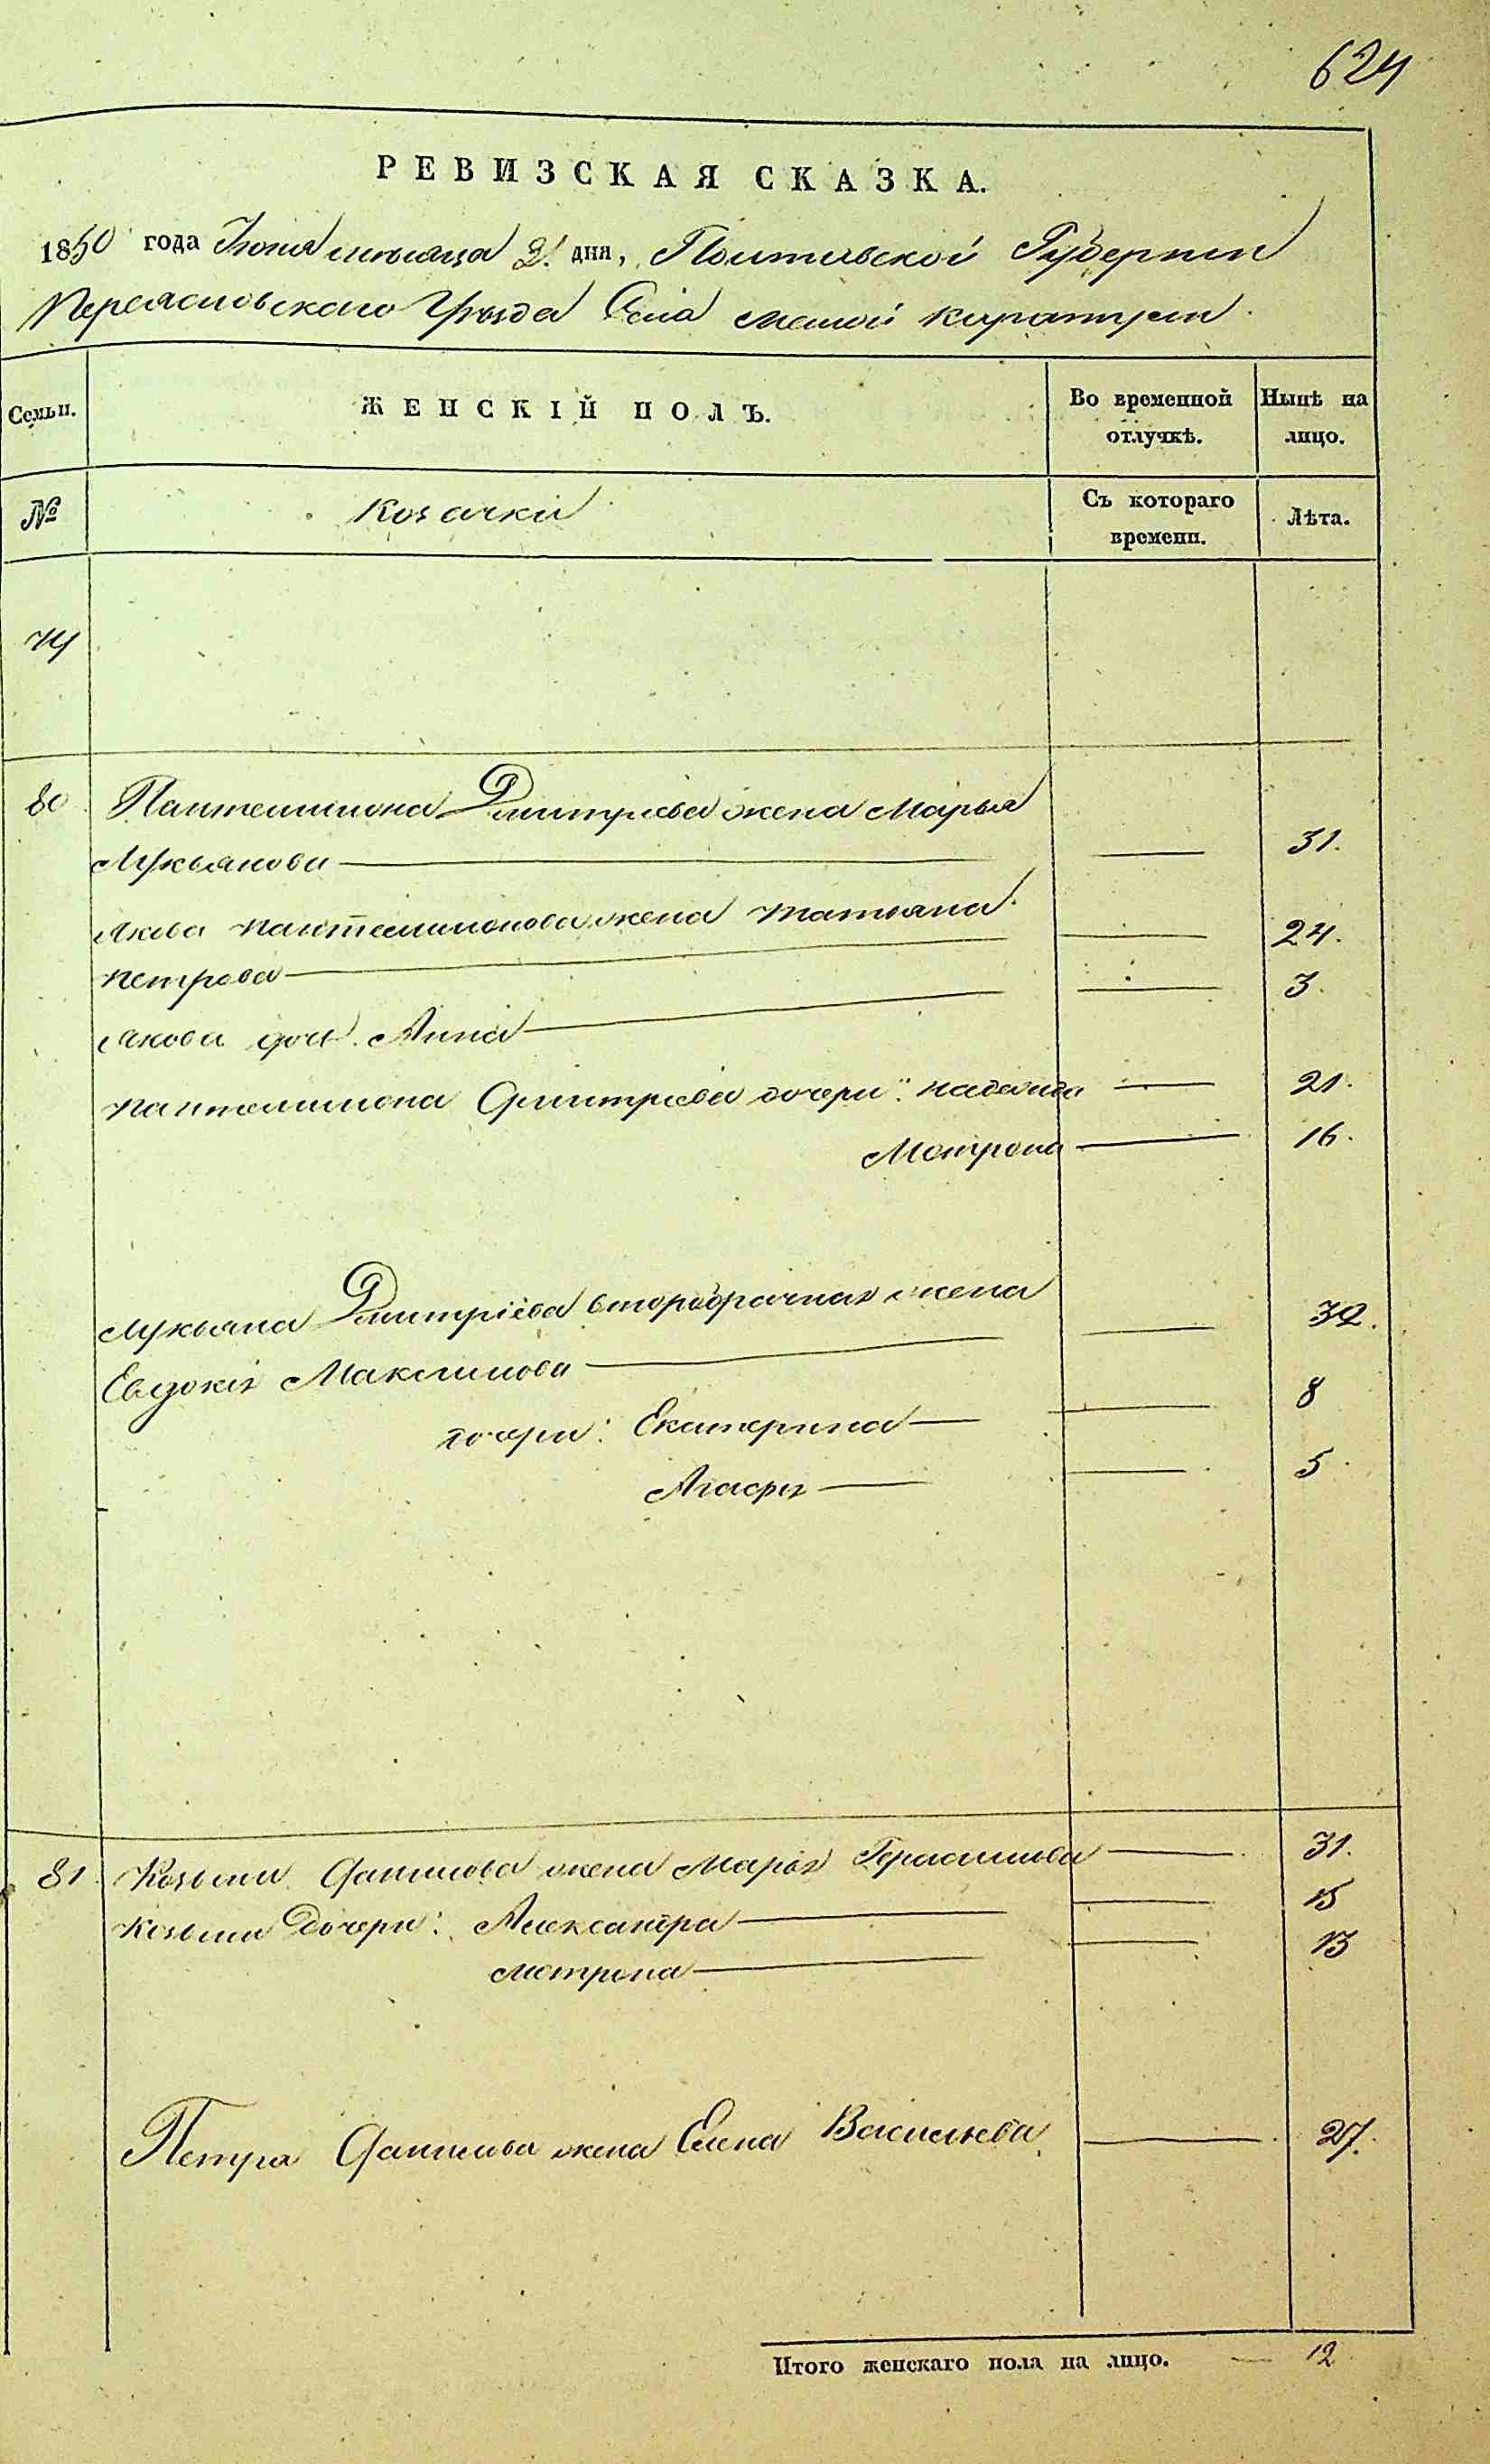 624
РЕВИЗСКАЯ СКАЗКА.
1850 года Июня месяца 2 дня, Полтавской Губернии
Переясловского Уѣзда Села Малой Каратули
Семьи.
ЖЕНСКІЙ ПОЛЪ.
Во временной отлучкѣ.
Нынѣ на лицо.
№
Козачки
Съ котораго времени.
Лѣта.
80 Пантелимона Дмитріева жена Марья
Лукьянова — — 31.
Якова Пантелимонова жена Татьяна
Петрова — — 24.
Якова дочь Анна — — 3.
Пантелимона Дмитріева дочери: Надежда — 21.
Мотрона — 16.
Лукьяна Дмитріева второбрачная жена
Евдокія Максимова — — 32.
дочери: Екатерина — — 8
Агафія — — 5
81 Козьмы Данилова жена Марія Герасимова — 31.
Козьмы дочери: Александра — — 15
Мотрона — — 13
Петра Данилова жена Елена Васильева — 27.
Итого женскаго пола на лицо. — 12